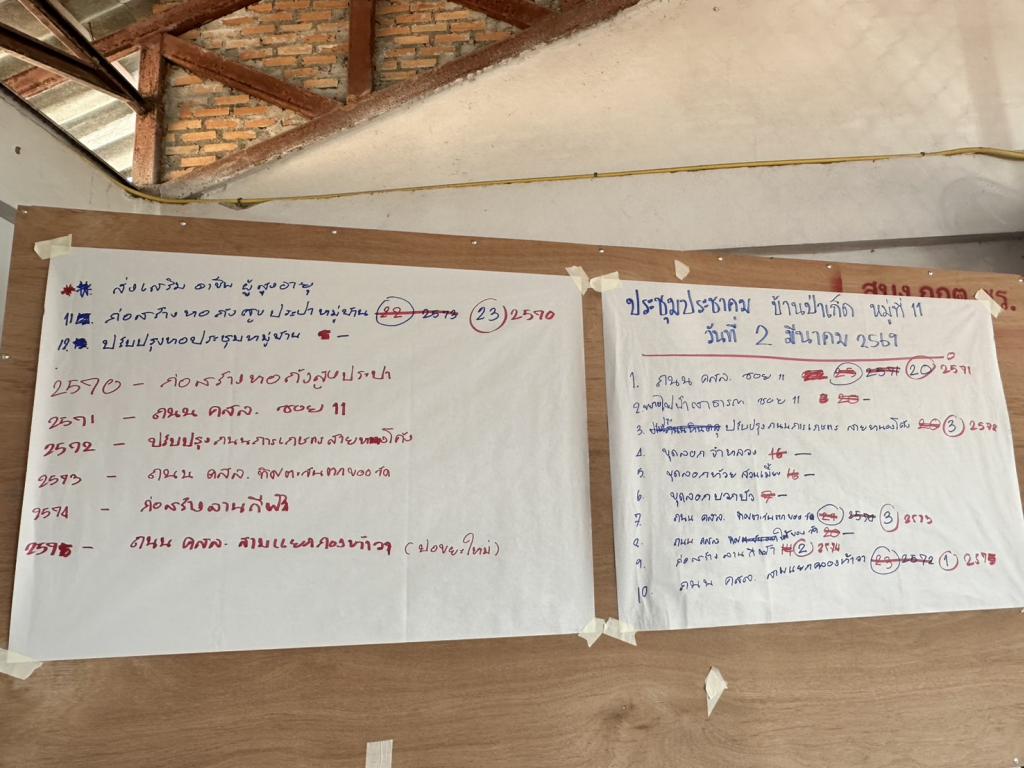 ส่งเสริม อาชีพ ผู้สูงอายุ
11. ก่อสร้าง หอ ถังสูง ประปาหมู่บ้าน 22 2573 23 2570
12. ปรับปรุงหอประชุมหมู่บ้าน 5 —
2570 – ก่อสร้างหอถังสูงประปา
2571 – ถนน คสล. ซอย 11
2572 – ปรับปรุงถนนการเกษตรสายหนองโค้ง
2573 – ถนน คสล. ทิศตะวันตกของวัด
2574 – ก่อสร้างลานกีฬา
2575 – ถนน คสล. สามแยกคลองห้าวา (บ่อขยะใหม่)
ประชุมประชาคม บ้านป่าเก็ด หมู่ที่ 11
วันที่ 2 มีนาคม 2569
1. ถนน คสล. ซอย 11 25 2571 20 2571
2. ไฟฟ้าสาธารณะ ซอย 11 20 –
3. ปรับปรุงถนนการเกษตร สายหนองโค้ง 20 3 2572
4. ขุดลอก จำหลวง 16 –
5. ขุดลอกห้วย สวนเมี้ยง 16 –
6. ขุดลอก บวกบัว 9 –
7. ถนน คสล. ทิศตะวันตกของวัด 21 2570 3 2573
8. ถนน คสล. 20 –
9. ก่อสร้าง ลานกีฬา 14 2 2574
10. ถนน คสล. สามแยกคลองห้าวา 23 2572 1 2575